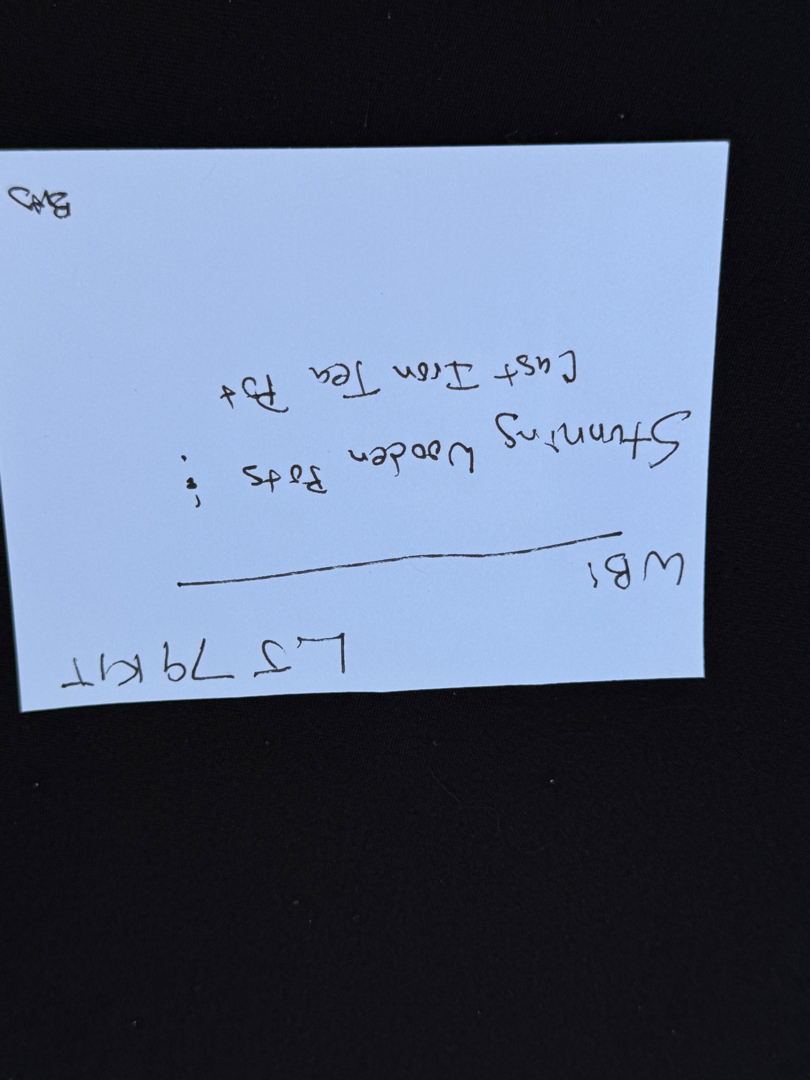 LJ
WB1
Stunning Wooden Pots &
Cast Iron Tea Pot